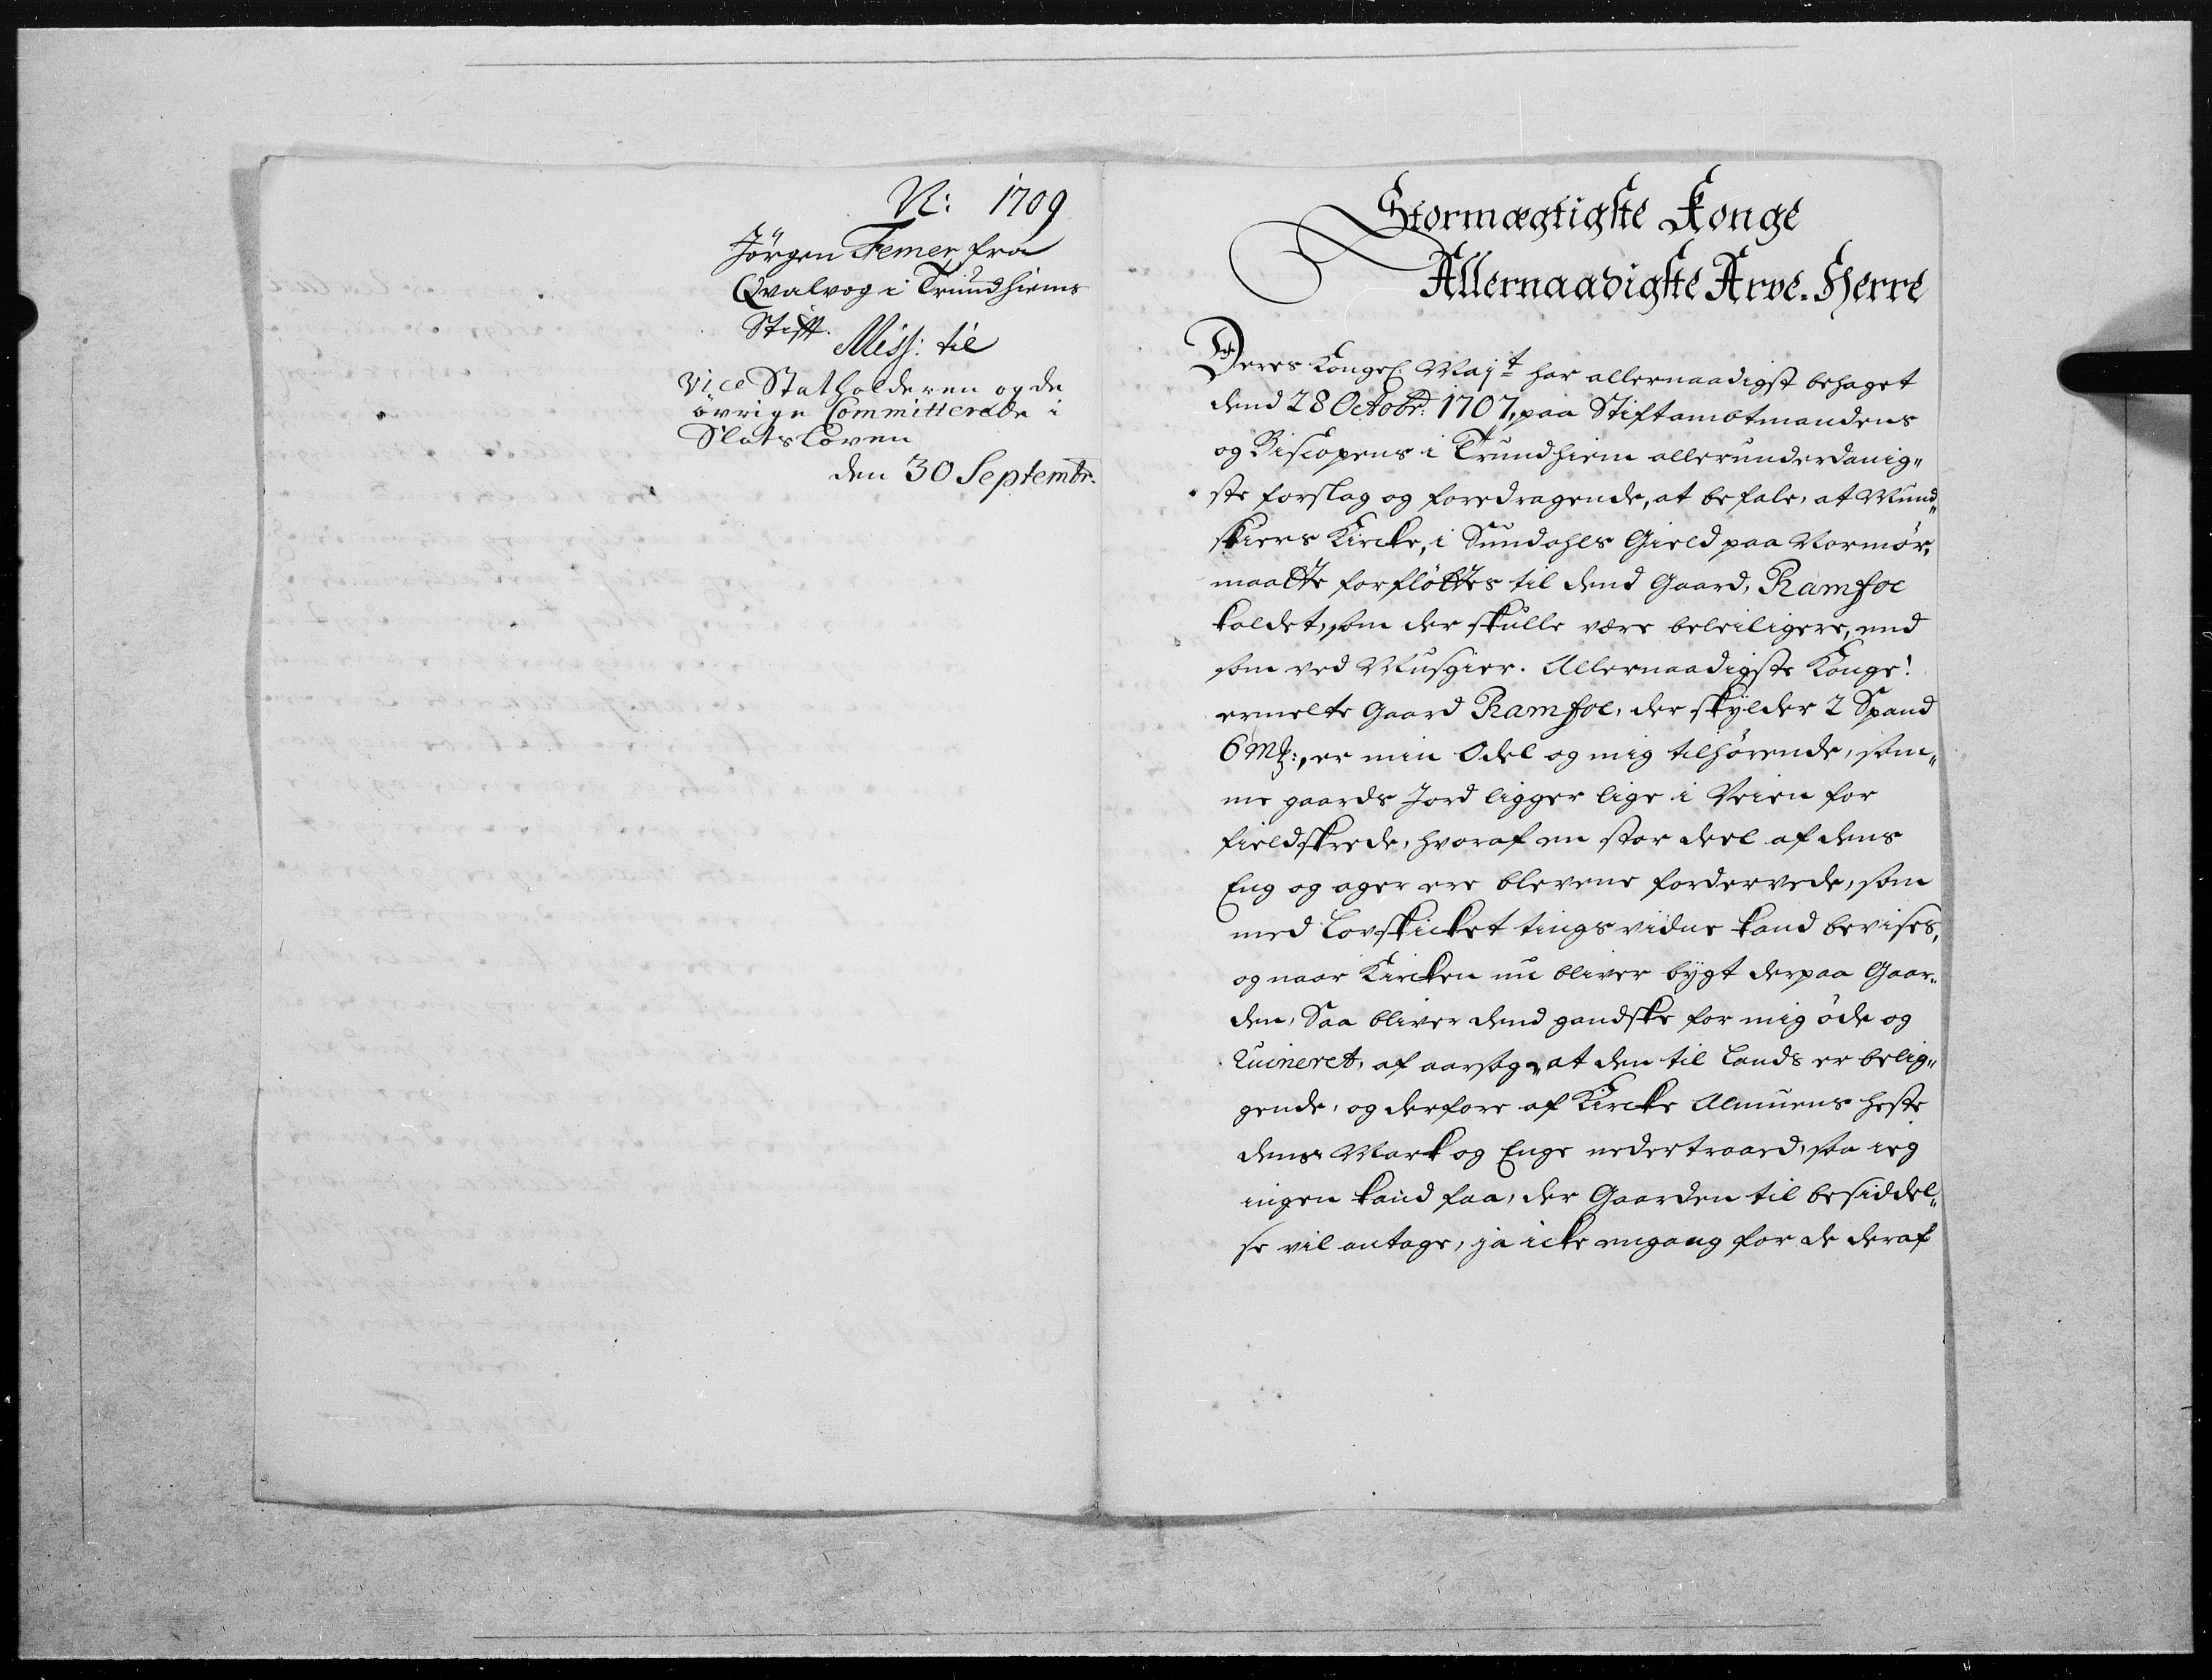 N: 1709
Jörgen Femer, fra
Qvalvog i Trundhiems
Stifft.
Miss: til
Vice Statholderen og de
övrige Committerede i
Slotsloven
den 30 Septembr.
Stormægtigste Konge
Allernaadigste Arve-Herre
Deres Kongel: Mayt har allernaadigst behaget
dend 28 Octobr: 1707, paa Stiftambtmandens
og Biscopens i Trundhiem allerunderdanig„
ste forslag og foredragende, at befale, at Mund„
skiers Kircke, i Sundahls Gield paa Normör,
maatte forflöttes til dend Gaard, Ramfoe
kaldet, som der skulle være beleiligere, end
som ved Musgier. Allernaadigste Konge!
ermelte Gaard Ramfoe, der skÿlder 2 Spand
6 Mk:, er min Odel og mig tilhörende, sam„
me gaards Jord ligger lige i Veien for
fieldskrede, hvoraf en stor deel af dens
Eng og ager ere blevene fordervede, som
med Lovskicket tings vidne kand bevises,
og naar Kircken nu bliver bÿgt derpaa Gaar„
den, Saa bliver dend gandske for mig öde og
Ruineret, af aarsag, at den til Lands er belig„
gende, og derfore af Kircke Almuens heste
dens Mark og Enge nedertraad, saa ieg
ingen kand faa, der Gaarden til besiddel„
se vil antage, ja icke engang for de deraf